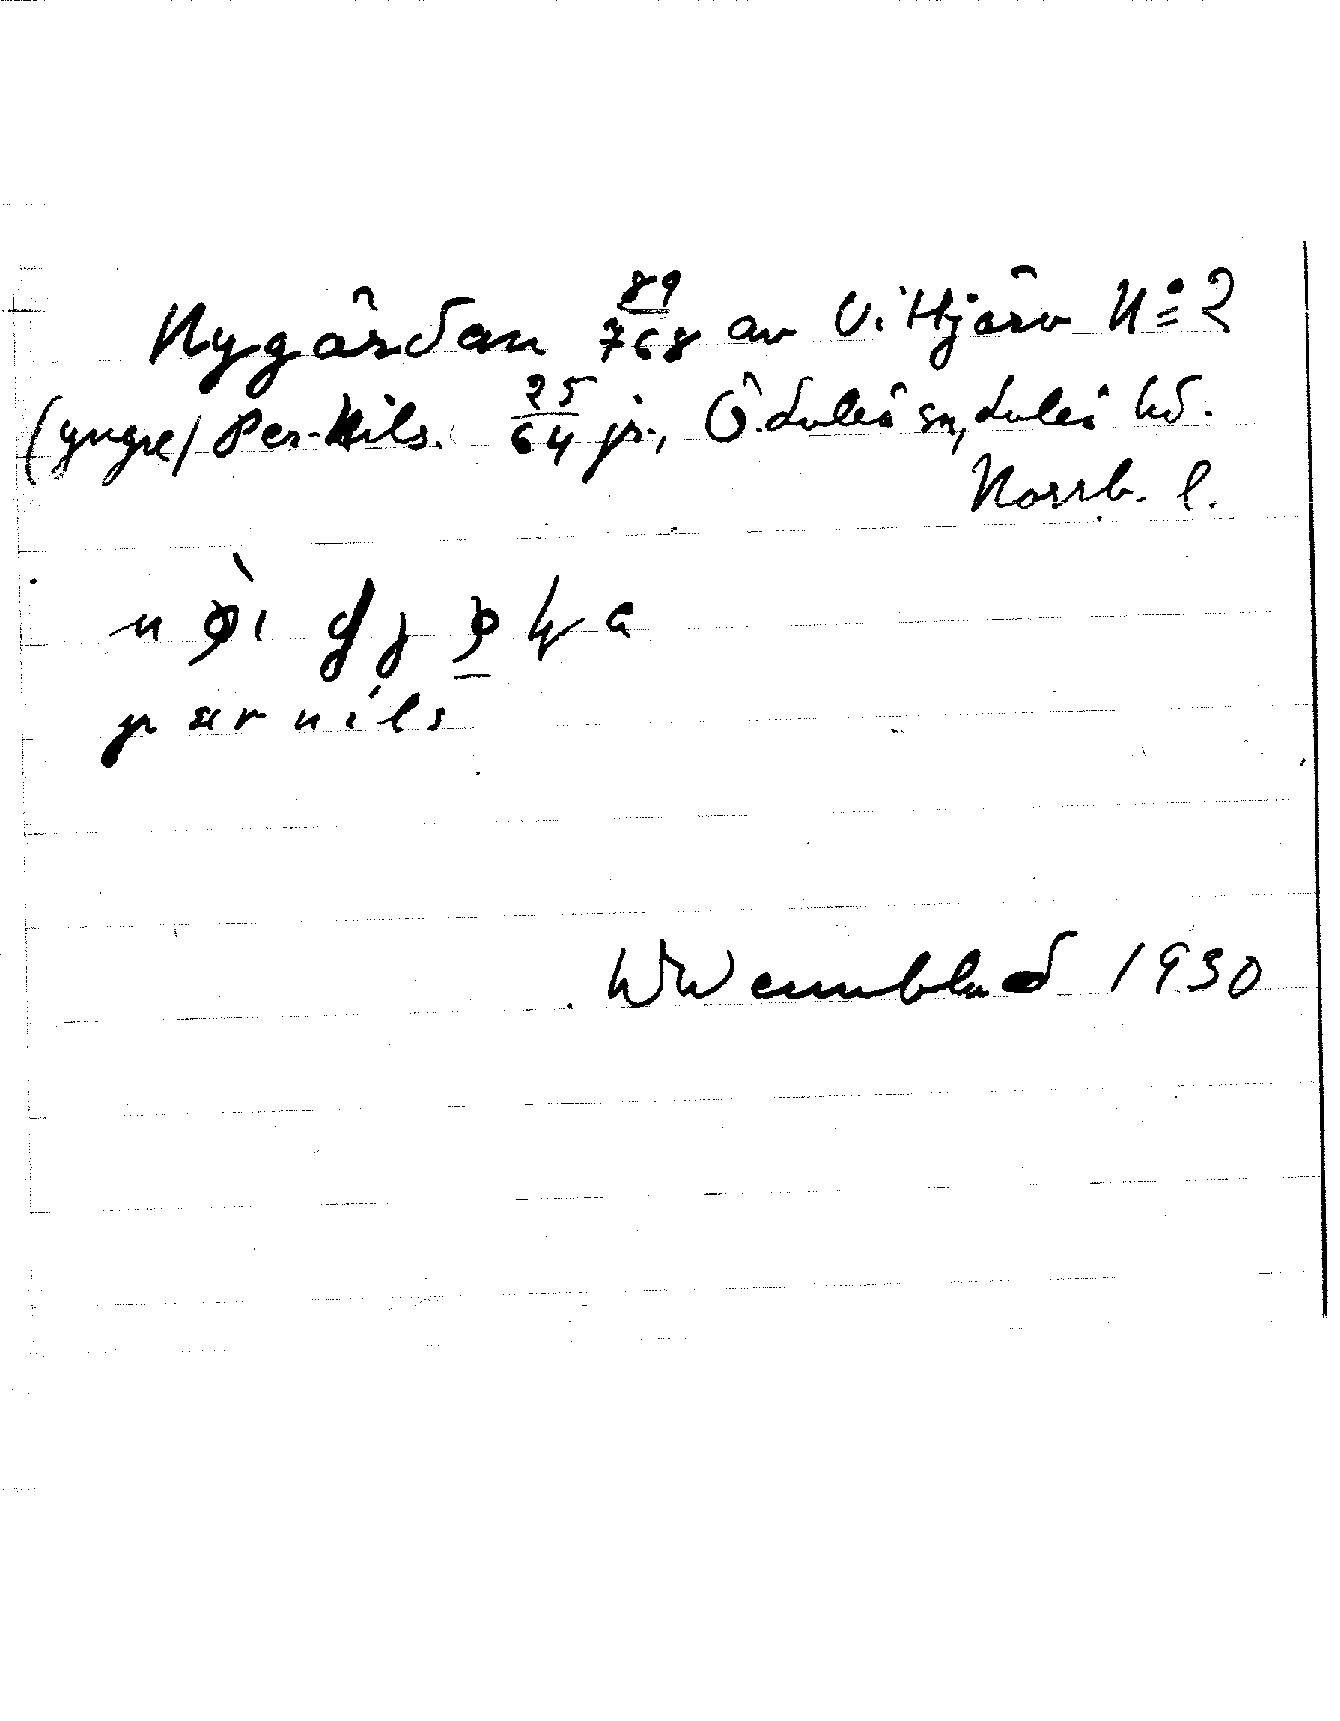 Nygårdan 89/768 av Vittjärv No 2
(yngre) Per-Nils. 25/64 jr., Ö. Luleå sn, Luleå hd.
Norrb. l.
pær nils
W Wennblad 1930